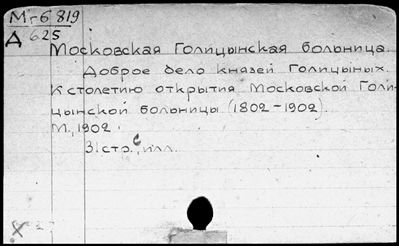 Мг6 819
Д 625
Московская Голицынская больница.
Доброе дело князей Голицыных.
К столетию открытия Московской Голи-
цынской больницы (1802-1902).
М., 1902.
31 стр. с илл.